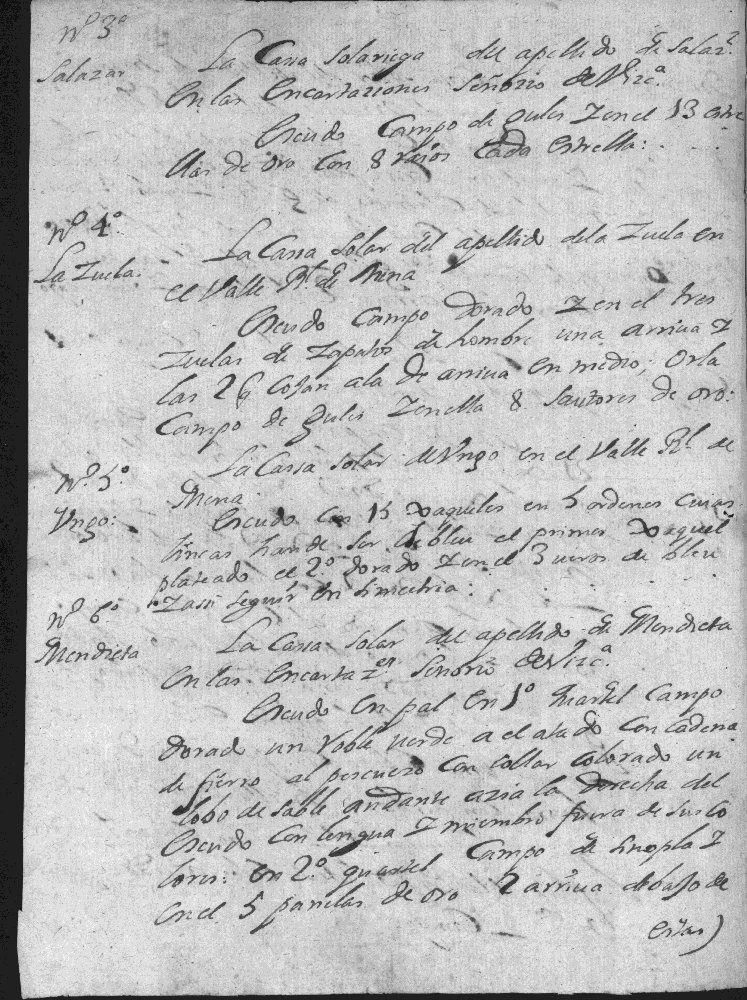 nº 3º
Salazar
La Cassa Solariega del apellido de Salazr.
en las Encartaziones Señorio de Vizcª.
Escudo Campo de gules Z en el 13 estre
llas de oro con 8 raios cada estrella:
nº 4º
La Zuela.
La Cassa Solar del apellido dela Zuela en
el Valle Rl. de Mena
Escudo Campo Dorado Z en el tres
Zuelas de Zapatos de hombre una arriva Z
las 2 cojan ala de arriva en medio; Orla
Campo de gules Z en ella 8 Sautores de oro:
Nº. 5º
Vngo:
La Cassa Solar de Vngo en el Valle Rl. de
Mena
Escudo con 15 xaqueles en 5 ordenes cuias
lineas han de ser de bleu el primer xaquel
plateado el 2º dorado Z en el 3 veros de bleu
Z assi seguir en simetria:
Nº 6º
Mendieta
La Cassa Solar del apellido de Mendieta
en las encartazes. Señorio de Vizcª.
Escudo en pal en 1º quartel Campo
Dorado un roble verde a el atado con cadena
de fierro al pescuezo con collar colorado un
lobo de sable andante azia la derecha del
Escudo con lengua Z miembro fuera de sus co
lores: en 2º. quartel Campo de Sinopla Z
en el 5 panelas de oro 2 arriva debajo de
estas)